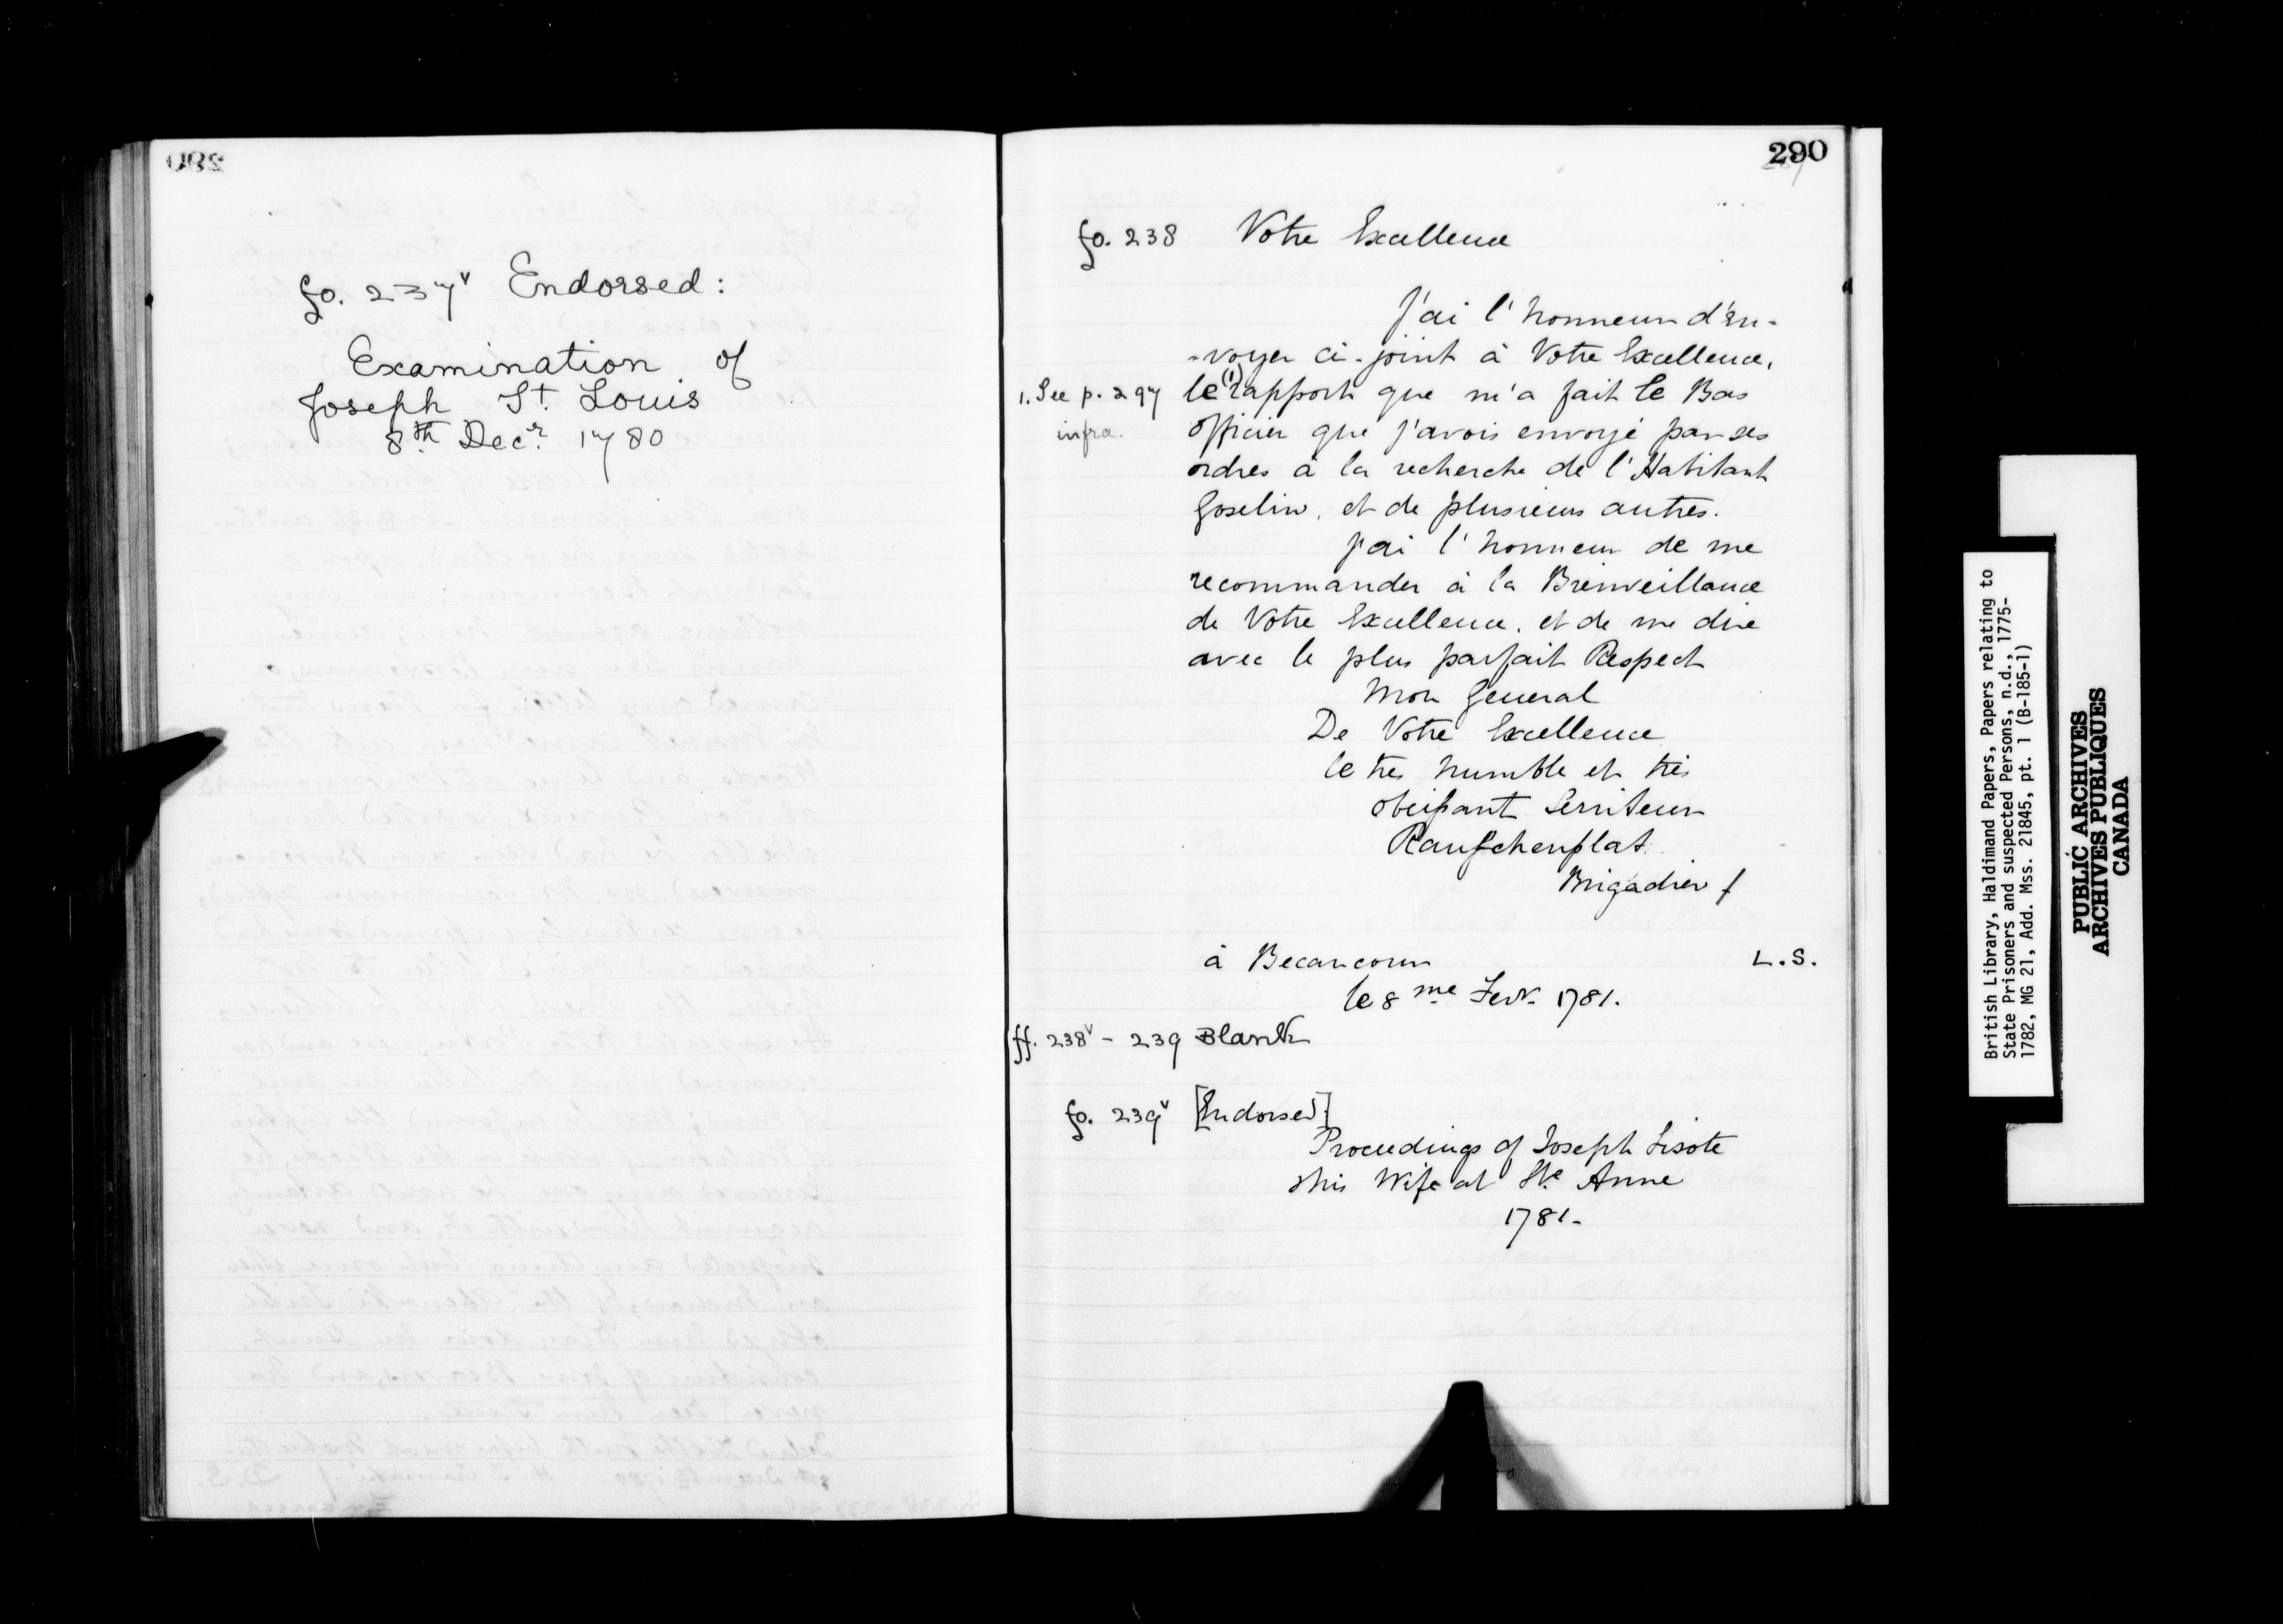 fo. 237v Endorsed:
Examination of
Joseph St. Louis
8th Decr. 1780
290
fo. 238 Votre Excellence
J'ai l'honneur d'En-
-voyer ci-joint à Votre Excellence,
1. See p. 297
infra.
le (1) rapport que m'a fait le Bas
officier que j'avois envoyé par ses
ordres à la recherche de l'Habitant
Goselin, et de plusieurs autres.
J'ai l'honneur de me
recommander à la Bienveillance
de Votre Excellence, et de me dire
avec le plus parfait Respect
Mon General
De Votre Excellence
le tres humble et très
obeissant Serviteur
Rauschenplat
Brigadier
à Becancour L.S.
le 8me Fevr. 1781.
ff. 238v - 239 Blank
fo. 239v [Endorsed]
Proceedings of Joseph Lisote
& his Wife at Ste Anne
1781-
British Library, Haldimand Papers, Papers relating to
State Prisoners and suspected Persons, n.d., 1775-
1782, MG 21, Add. Mss. 21845, pt. 1 (B-185-1)
PUBLIC ARCHIVES
ARCHIVES PUBLIQUES
CANADA